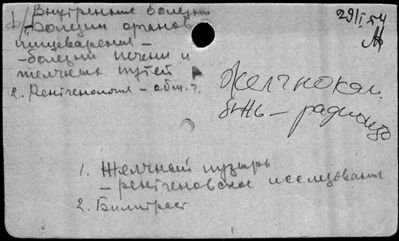 1/ Внутренние болезни
-Болезни органов
пищеварения -
- болезни печени и
желчных путей
2. Рентгенология - общ. ч.
29/I 54
Желчнокам.
б-нь -
1. Желчный пузырь
- рентгеновское исследования
2. Билитраст